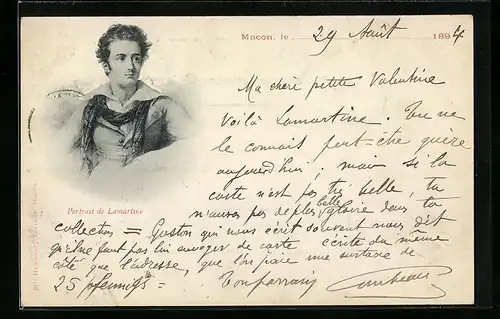 Macon, le 29 Août 1894
Ma chère petite Valentine
Voilà Lamartine. Tu ne
le connais peut-être guère
aujourd'hui, mais si la
carte n'est pas très belle, ta
n'auras pas de plus belle gloire dans ta
Portrait de Lamartine
collection = Gaston qui nous écrit souvent nous dit
qu'il ne faut pas lui envoyer de carte écrite du même
côté que l'adresse, que l'on paie une surtaxe de
25 pfennigs =
Ton parrain